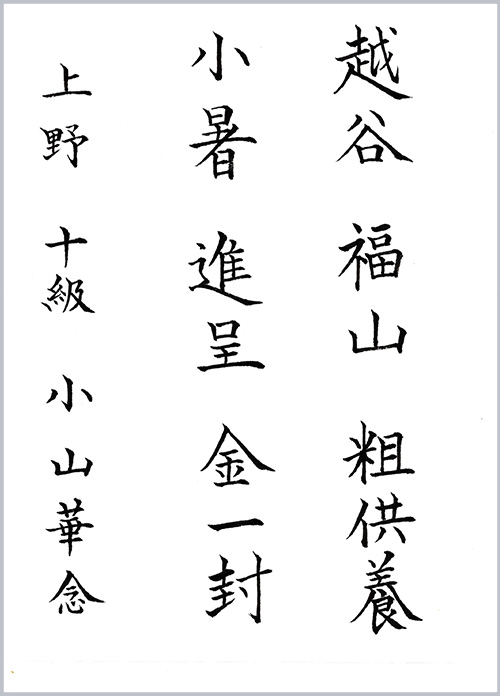 越谷 福山 粗供養
小暑 進呈 金一封
上野 十級 小山華念